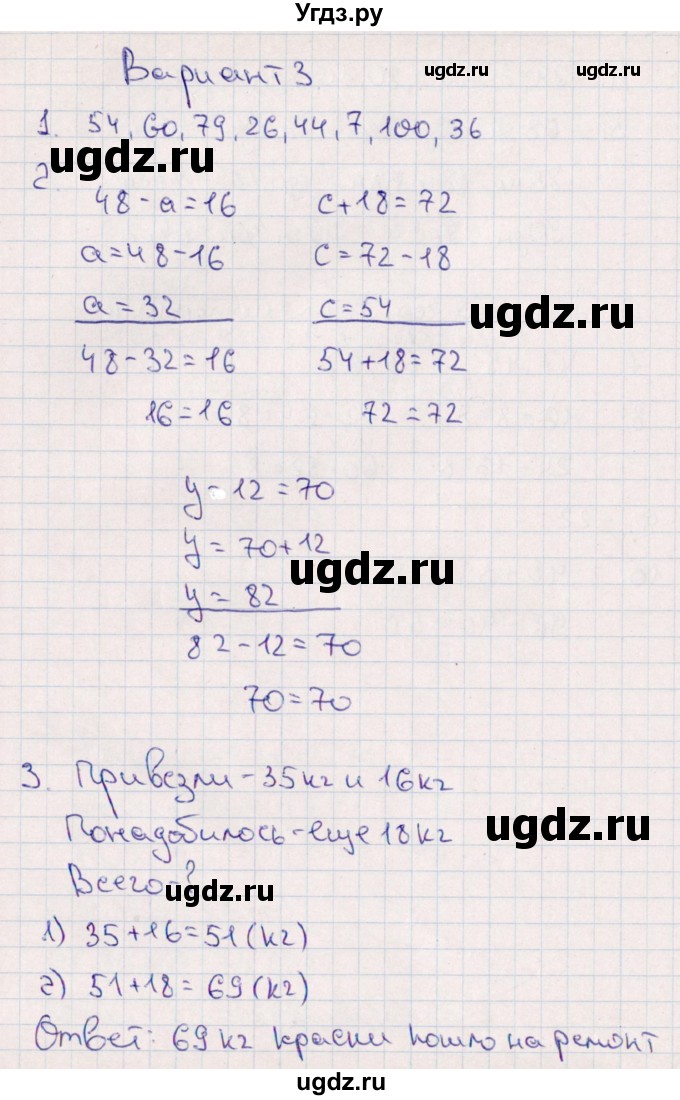 Угдз.ру
Вариант 3
ugdz.ru ugdz.ru
1. 54, 60, 79, 26, 44, 7, 100, 36
ugdz.ru
2.
48 - a = 16 c + 18 = 72
a = 48 - 16 c = 72 - 18
a = 32 c = 54
ugdz.ru
48 - 32 = 16 54 + 18 = 72
16 = 16 72 = 72
y - 12 = 70
y = 70 + 12
ugdz.ru
y = 82
82 - 12 = 70
70 = 70
3. Привезли - 35 кг и 16 кг
Понадобилось - еще 18 кг
ugdz.ru
Всего - ?
ugdz.ru
1) 35 + 16 = 51 (кг)
2) 51 + 18 = 69 (кг)
Ответ: 69 кг краски пошло на ремонт
ugdz.ru